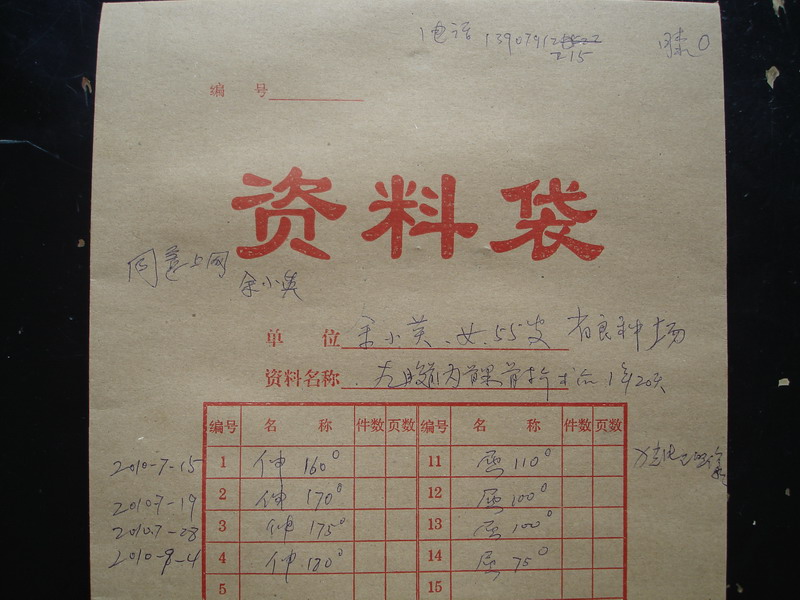 电话 13907912
215
膝0
编 号
资料袋
同意上网
余小英
单 位 余小英、女、55岁 省良种场
资料名称 左 内踝骨折术后1年20天
编号 名 称 件数 页数 编号 名 称 件数 页数
2010-7-15 1 伸 160° 11 屈 110°
2010.7-19 2 伸 170° 12 屈 100°
2010.7-28 3 伸 175° 13 屈 100°
2010-8-4 4 伸 180° 14 屈 75°
5 15